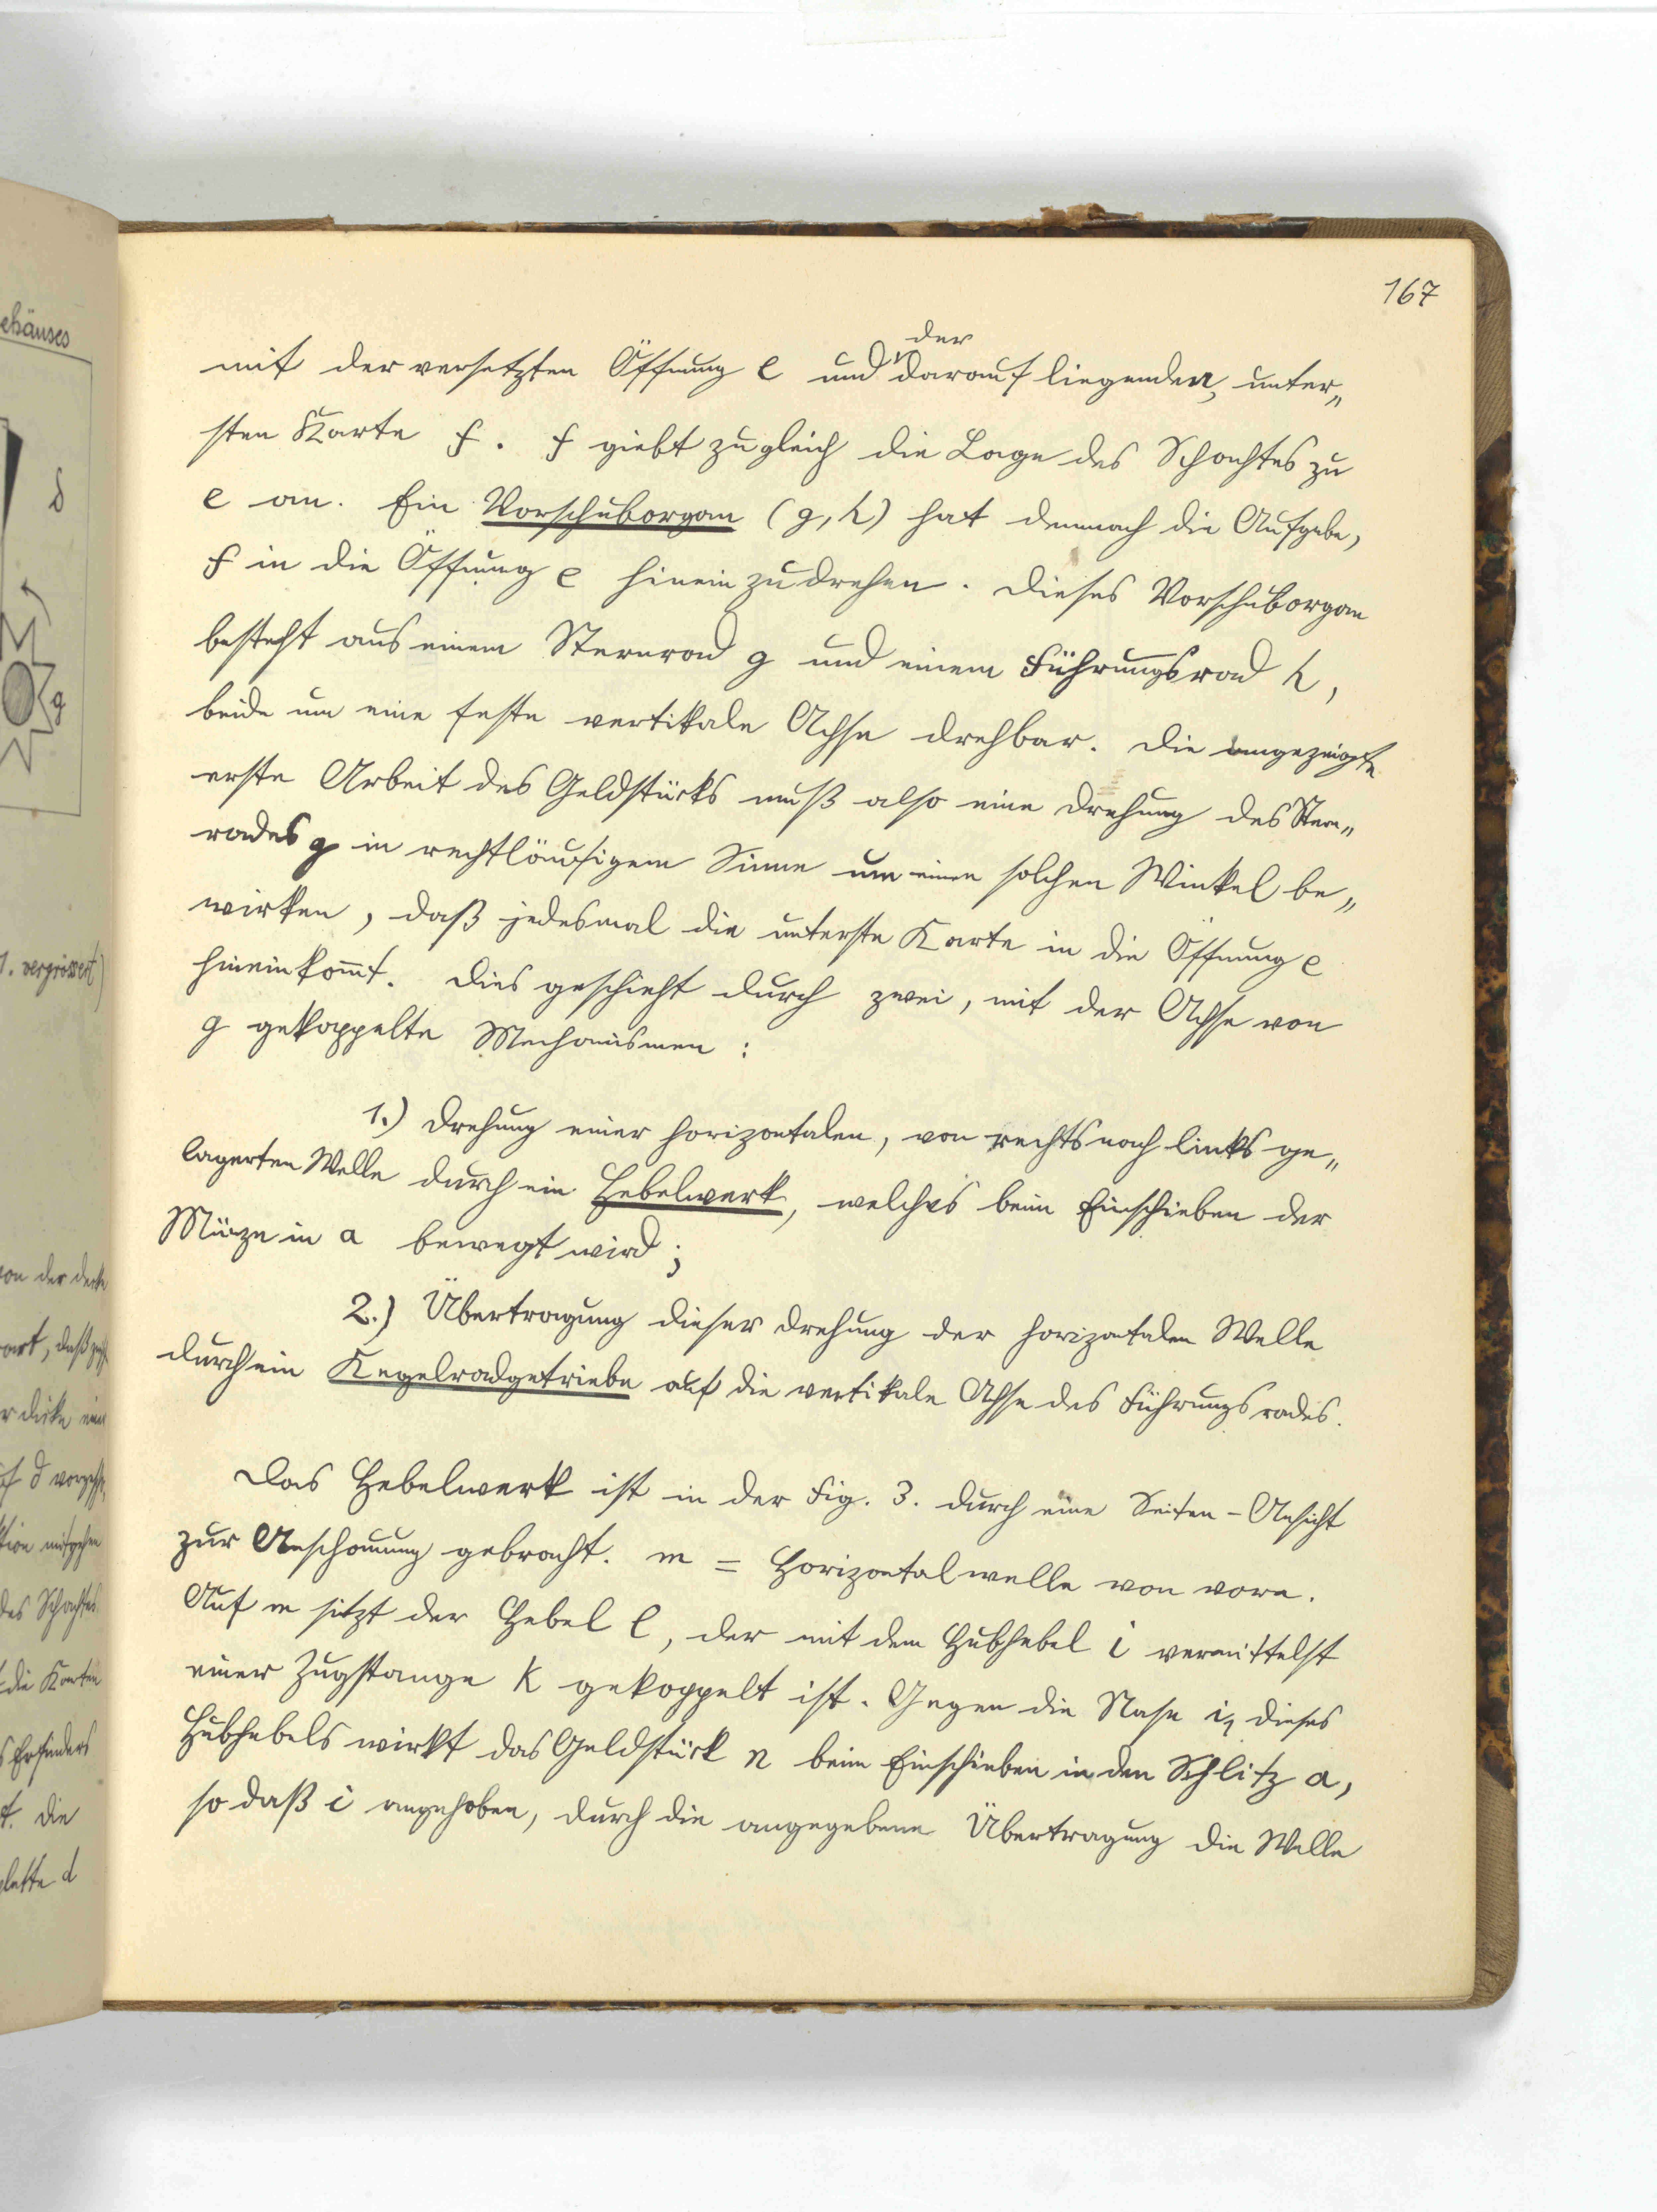 ehäuses
δ
g
1. vergrössert)
von der decke
art, daß
r dicke
d
tion mitgehen
des Schachtes
die Karten
s Erfinders
t. die
platte d
167
der
mit der versetzten Öffnung e und darauf liegenden, unter„
sten Karte f. f giebt zugleich die Lage des Schachtes zu
e an. Ein Vorschuborgan (g, h) hat demnach die Aufgabe,
f in die Öffnung e hineinzudrehen. Dieses Vorschuborgan
besteht aus einem Sternrad g und einem Führungsrad h,
beide um eine feste vertikale Achse drehbar. Die angezeigte
erste Arbeit des Geldstücks muß also eine Drehung des Stern„
rades g in rechtläufigem Sinne um einen solchen Winkel be„
wirken, daß jedesmal die unterste Karte in die Öffnung e
hineinkom̄t. Dies geschieht durch zwei, mit der Achse von
g gekoppelte Mechanismen:
1.) Drehung einer horizontalen, von rechts nach links ge„
lagerten Welle durch ein Hebelwerk, welches beim Einschieben der
Münze in a bewegt wird;
2.) Übertragung dieser Drehung der horizontalen Welle
durch ein Kegelradgetriebe auf die vertikale Achse des Führungsrades.
Das Hebelwerk ist in der Fig. 3. durch eine Seiten-Ansicht
zur Anschauung gebracht. m = Horizontalwelle von vorn.
Auf m sitzt der Hebel l, der mit dem Hubhebel i vermittelst
einer Zugstange k gekoppelt ist. Gegen die Nase i₁ dieses
Hubhebels wirkt das Geldstück n beim Einschieben in den Schlitz a,
so daß i angehoben, durch die angegebene Übertragung die Welle